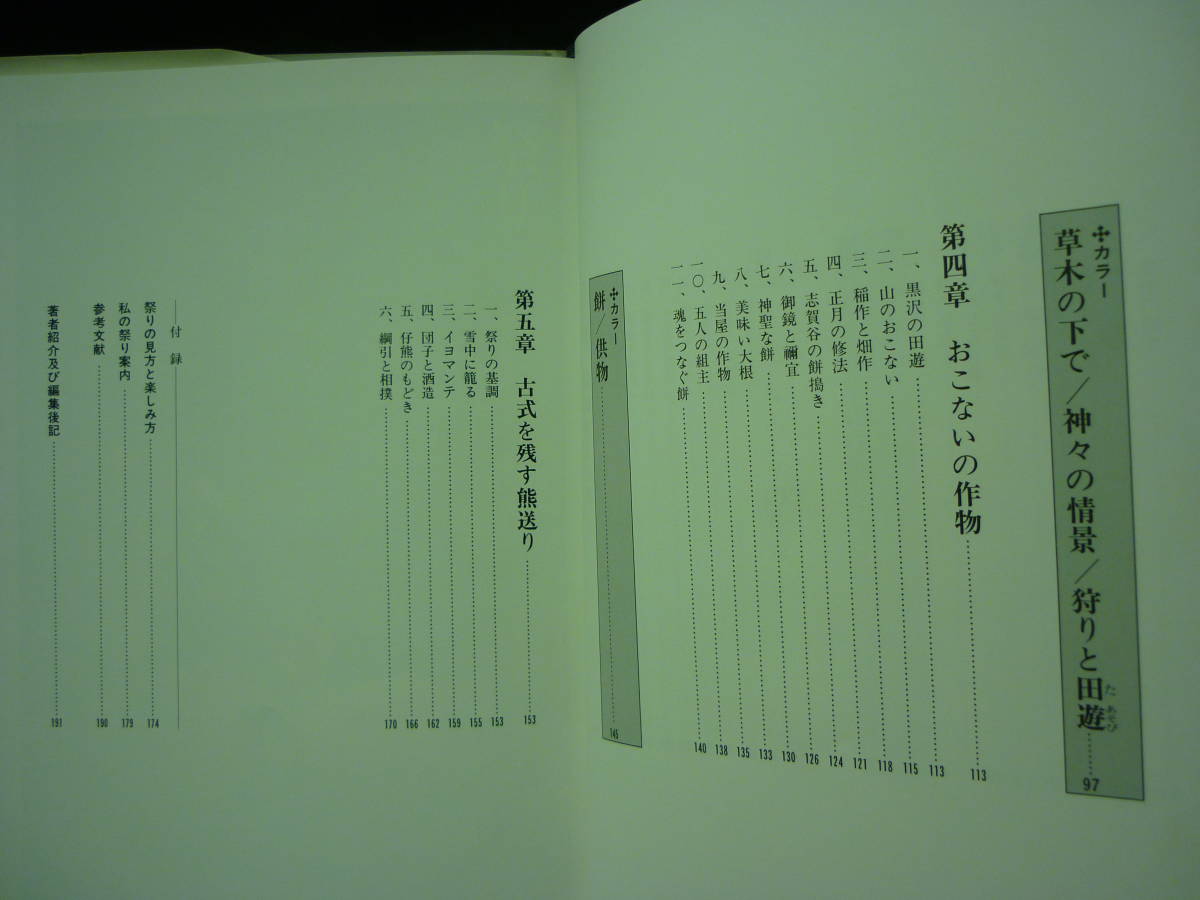 ✣カラー
草木の下で／神々の情景／狩りと田遊……97
た あそび
第四章　おこないの作物……113
一、黒沢の田遊……113
二、山のおこない……115
三、稲作と畑作……118
四、正月の修法……121
五、志賀谷の餅搗き……124
六、御鏡と禰宜……126
七、神聖な餅……130
八、美味い大根……133
九、当屋の作物……135
一〇、五人の組主……138
一一、魂をつなぐ餅……140
✣カラー
餅／供物……145
第五章　古式を残す熊送り……153
一、祭りの基調……153
二、雪中に籠る……155
三、イヨマンテ……159
四、団子と酒造……162
五、仔熊のもどき……166
六、綱引と相撲……170
付録
祭りの見方と楽しみ方……174
私の祭り案内……179
参考文献……190
著者紹介及び編集後記……191